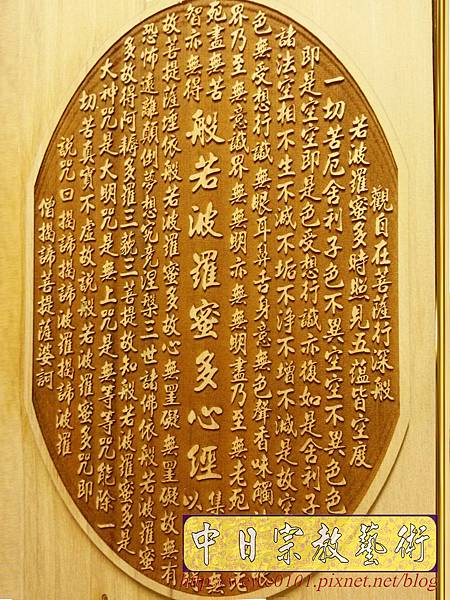 觀自在菩薩行深般
若波羅蜜多時照見五蘊皆空度
一切苦厄舍利子色不異空空不異色色
即是空空即是色受想行識亦復如是舍利子
諸法空相不生不滅不垢不淨不增不減是故空
色無受想行識無眼耳鼻舌身意無色聲香味觸
界乃至無意識界無無明亦無無明盡乃至無老死
死盡無苦集
般若波羅蜜多心經
智亦無得以
故菩提薩埵依般若波羅蜜多故心無罣礙無罣礙故無有
恐怖遠離顛倒夢想究竟涅槃三世諸佛依般若波羅蜜
多故得阿耨多羅三藐三菩提故知般若波羅蜜多是
大神咒是大明咒是無上咒是無等等咒能除一
切苦真實不虛故說般若波羅蜜多咒即
說咒曰揭諦揭諦波羅揭諦波羅
僧揭諦菩提薩婆訶
中日宗教藝術